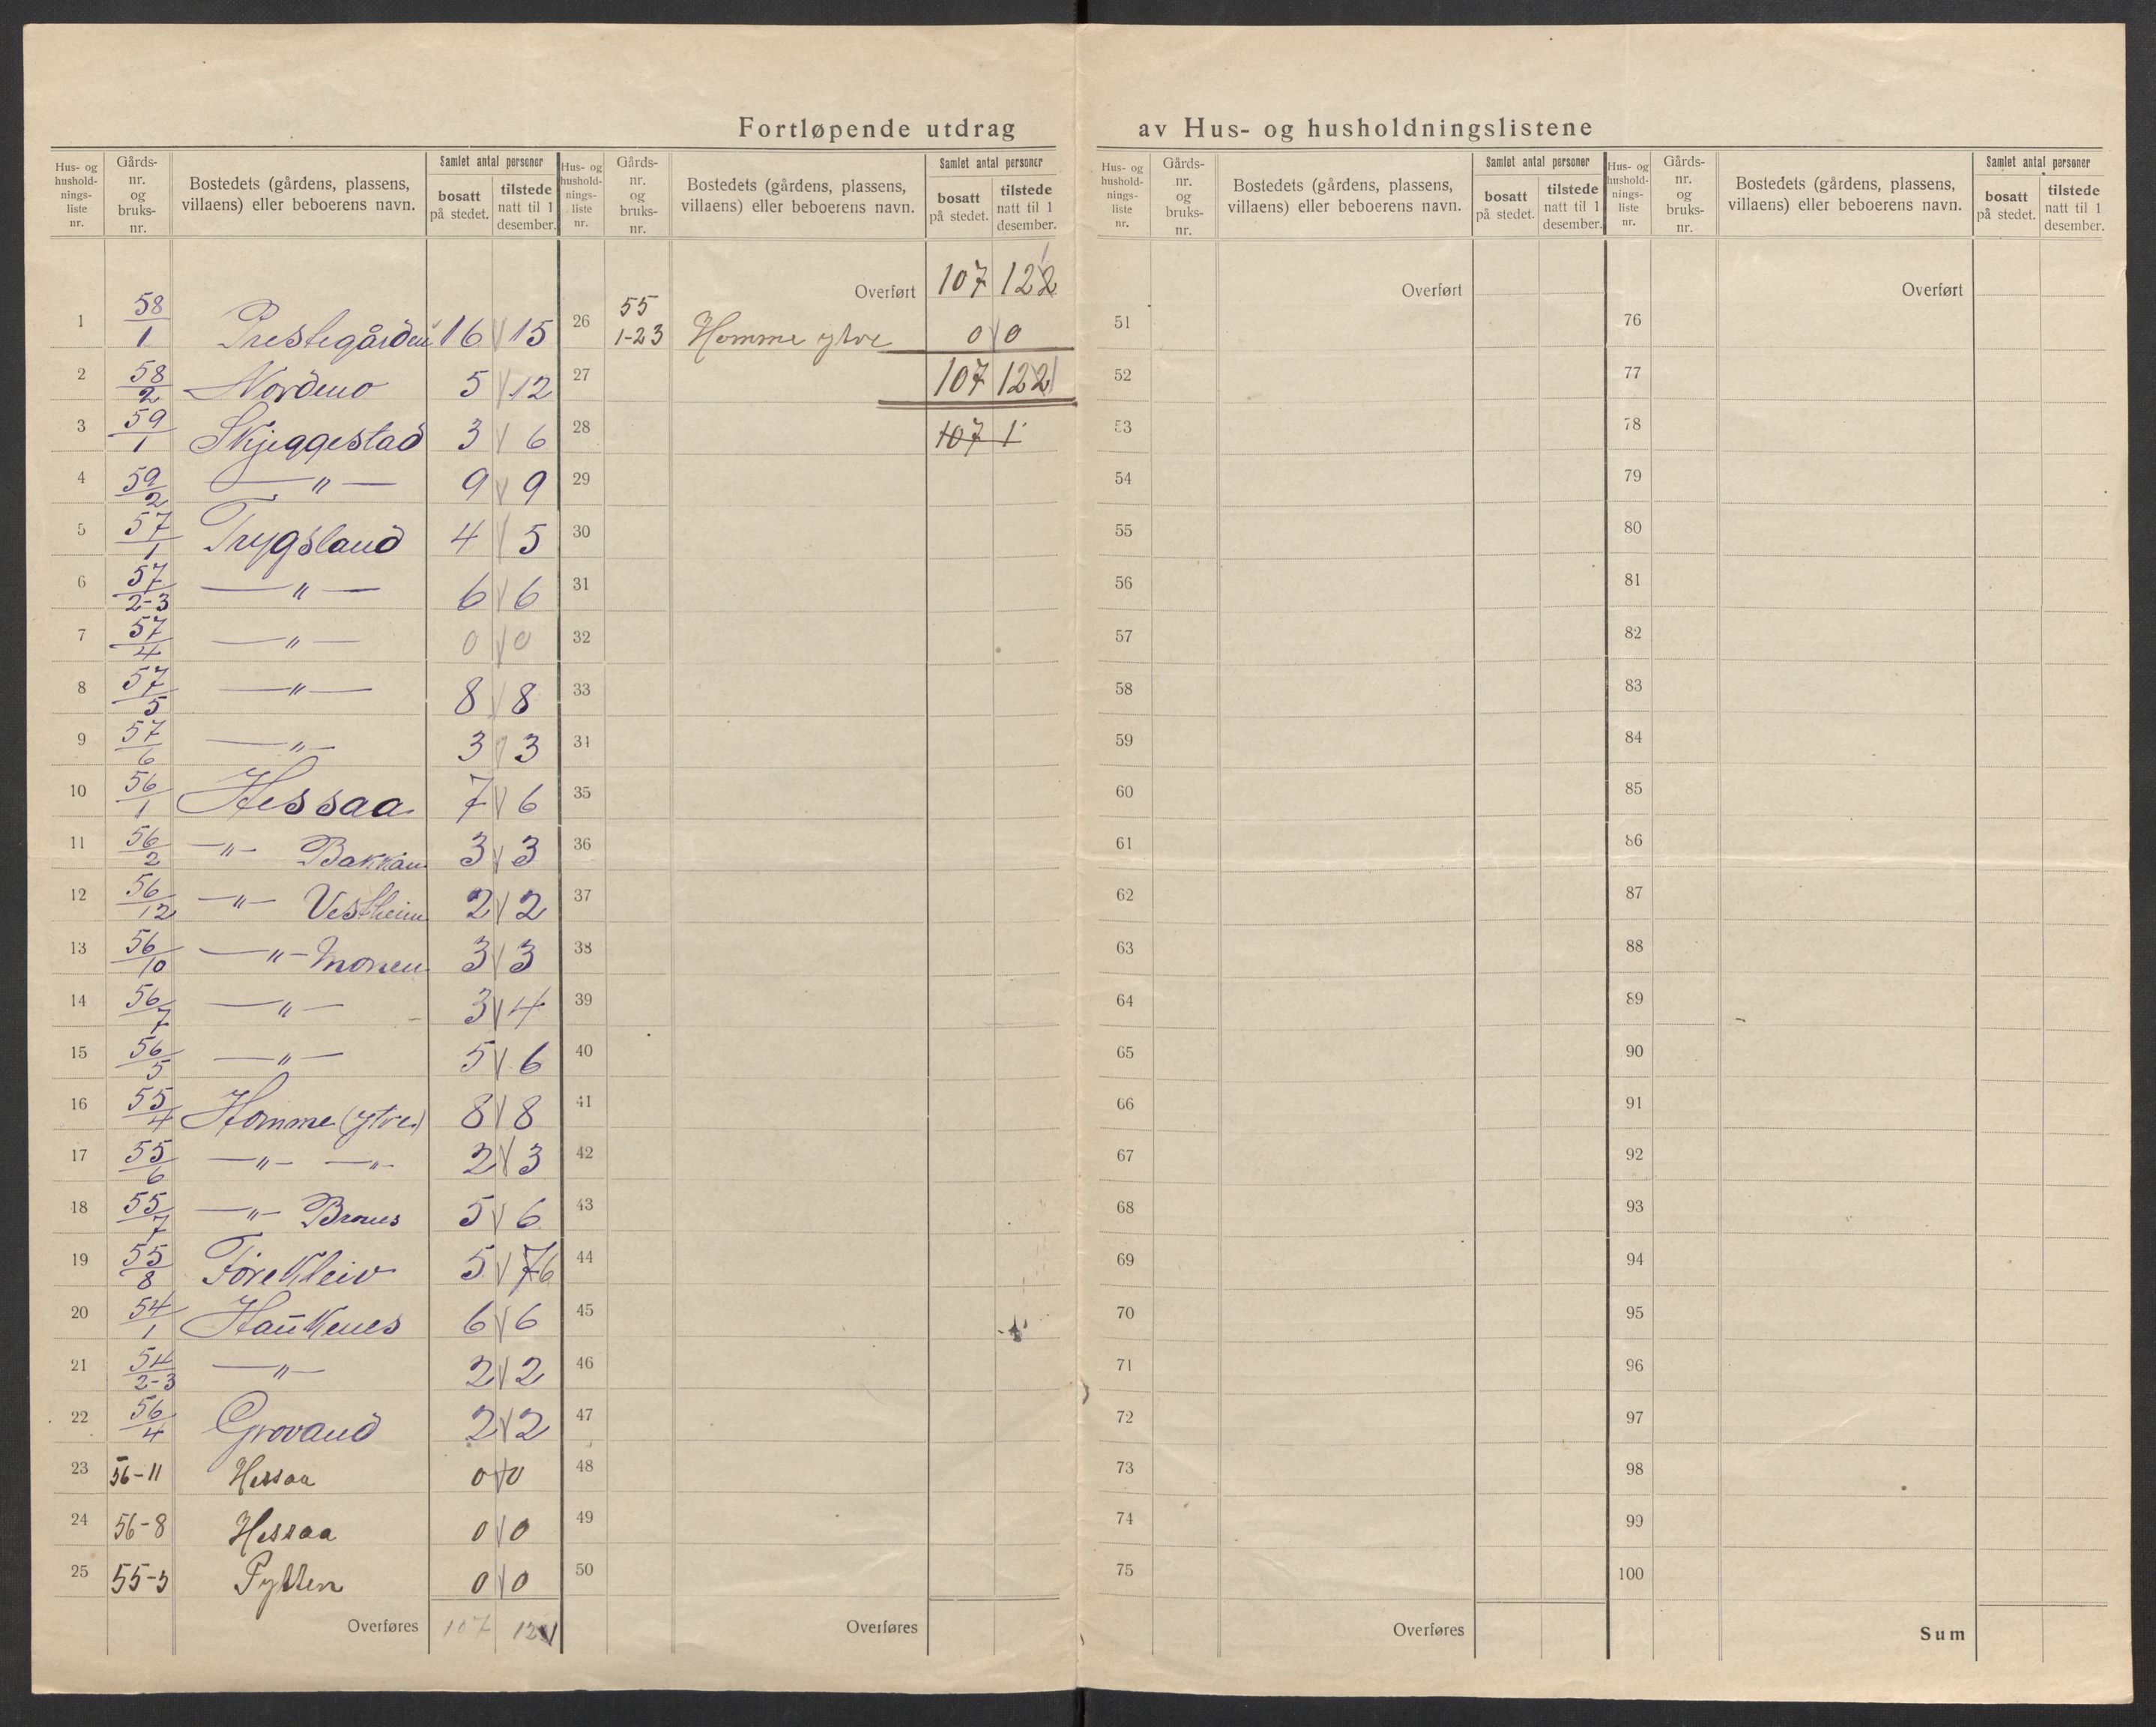 Fortløpende utdrag av Hus- og husholdningslistene
Hus- og husholdnings-liste nr. | Gårds-nr. og bruks-nr. | Bostedets (gårdens, plassens, villaens) eller beboerens navn. | Samlet antal personer | bosatt på stedet. | tilstede natt til 1 desember.
1 | 58/1 | Prestegården | 16 | 15
2 | 58/2 | Nordmo | 5 | 12
3 | 59/1 | Skjeggestad | 3 | 6
4 | 59/2 | —„— | 9 | 9
5 | 57/1 | Trygsland | 4 | 5
6 | 57/2-3 | —„— | 6 | 6
7 | 57/4 | —„— | 0 | 0
8 | 57/5 | —„— | 8 | 8
9 | 57/6 | —„— | 3 | 3
10 | 56/1 | Hessaa | 7 | 6
11 | 56/2 | —„— Bakkan | 3 | 3
12 | 56/12 | —„— Vestheim | 2 | 2
13 | 56/10 | —„— Monen | 3 | 3
14 | 56/7 | —„— | 3 | 4
15 | 56/5 | —„— | 5 | 6
16 | 55/4 | Homme (ytre) | 8 | 8
17 | 55/6 | —„— —„— | 2 | 3
18 | 55/7 | —„— | 5 | 6
19 | 55/8 | Forekleiv | 5 | 7 6
20 | 54/1 | Haukenes | 6 | 6
21 | 54/2-3 | —„— | 2 | 2
22 | 56/4 | Grovand | 2 | 2
23 | 56-11 | Hessaa | 0 | 0
24 | 56-8 | Hessaa | 0 | 0
25 | 55-3 | Pytten | 0 | 0
Overføres | 107 | 121
Hus- og husholdnings-liste nr. | Gårds-nr. og bruks-nr. | Bostedets (gårdens, plassens, villaens) eller beboerens navn. | Samlet antal personer | bosatt på stedet. | tilstede natt til 1 desember.
Overført | 107 | 122
26 | 55 1-23 | Homme ytre | 0 | 0
27 | 107 | 122
28 | 107 | 1
29
30
31
32
33
34
35
36
37
38
39
40
41
42
43
44
45
46
47
48
49
50
Overføres
Hus- og husholdnings-liste nr. | Gårds-nr. og bruks-nr. | Bostedets (gårdens, plassens, villaens) eller beboerens navn. | Samlet antal personer | bosatt på stedet. | tilstede natt til 1 desember.
Overført
51
52
53
54
55
56
57
58
59
60
61
62
63
64
65
66
67
68
69
70
71
72
73
74
75
Overføres
Hus- og husholdnings-liste nr. | Gårds-nr. og bruks-nr. | Bostedets (gårdens, plassens, villaens) eller beboerens navn. | Samlet antal personer | bosatt på stedet. | tilstede natt til 1 desember.
Overført
76
77
78
79
80
81
82
83
84
85
86
87
88
89
90
91
92
93
94
95
96
97
98
99
100
Sum